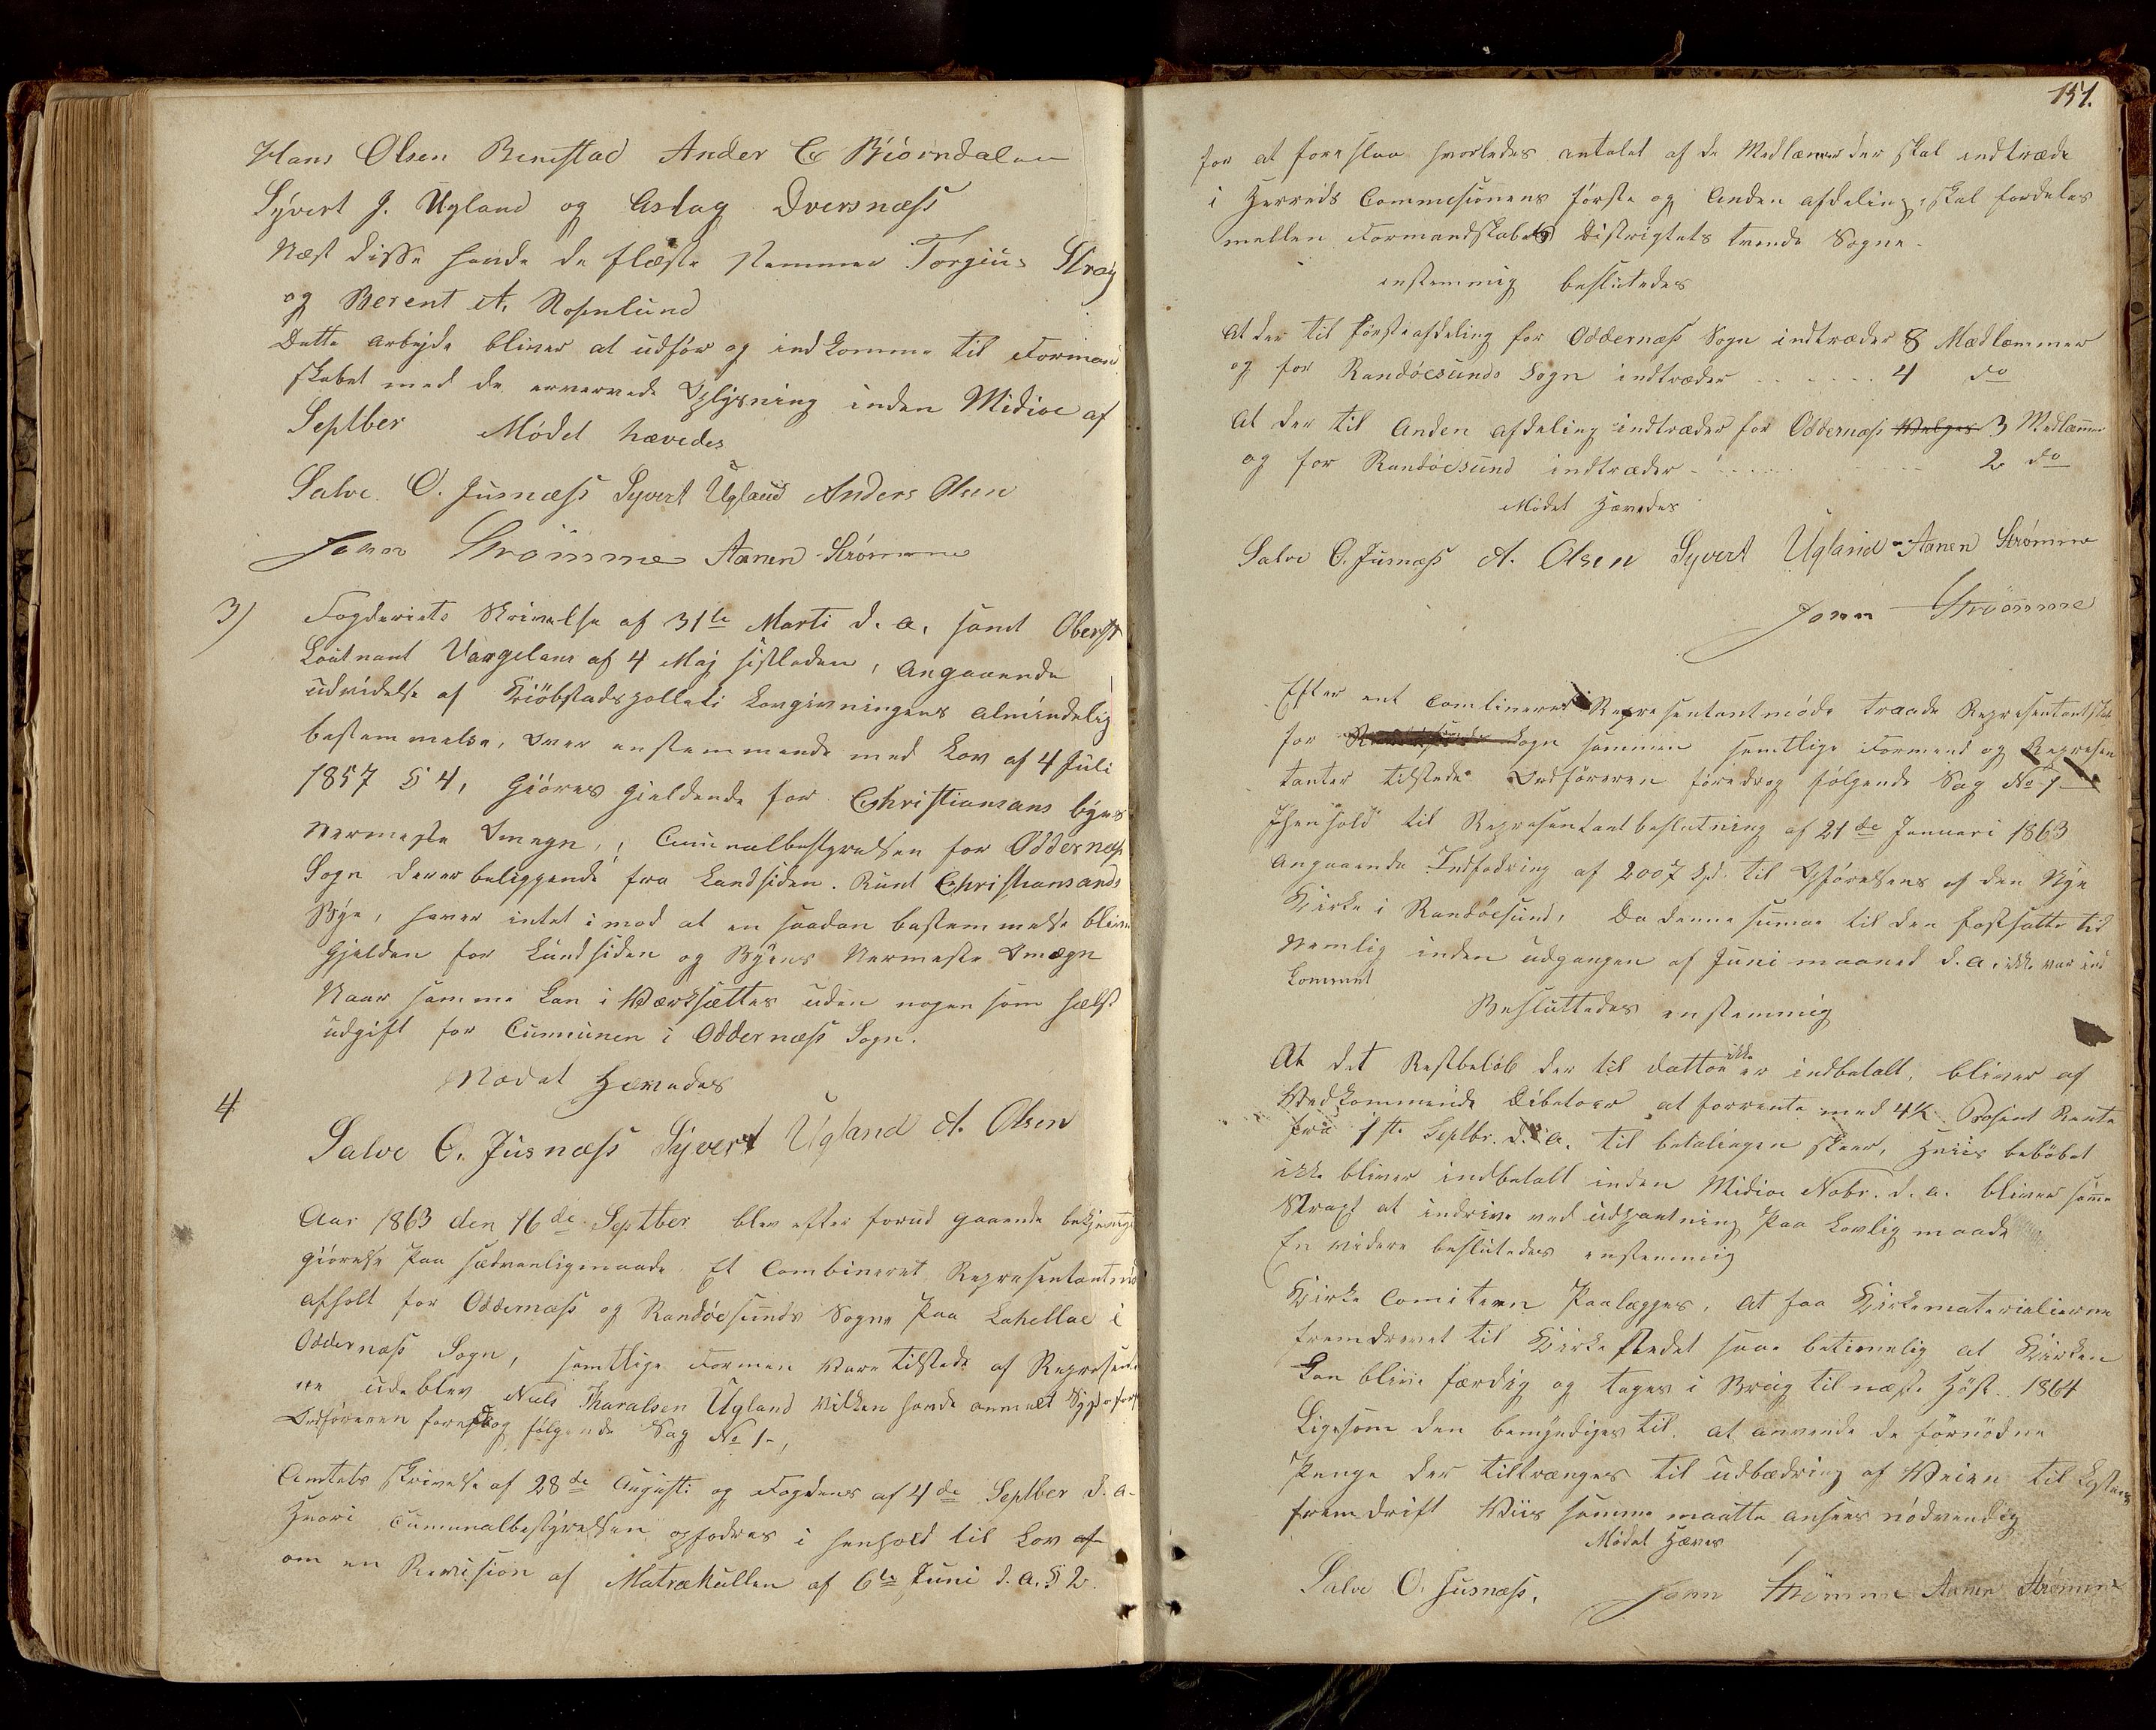 Hans Olsen Benestad Ander C Biörndalen
Syvert J. Ugland og Aslag Dversnæss
Næst disse havde de flæste stemmer Torgius Stray
og Berent A. Rosenlund
Dette arbejde bliver at udför og indkomme til Formand
skabet med de erværvede Oplysning inden Midioe af
Septber Mödet hævedes
Salve O. Jusnæss Syvert Ugland Anders Olsen
John Strömme Aanen Strömme
3) Fogderiets Skrivelse af 31te Marti d. a. samt Oberst
Löitnant Vangelans af 4 Maj sistleden, angaaende
udvidelse af Kiöbstadspolleti Lovgivningens almindelig
bestemmelse, over enstemmende med Lov af 4 Juli
1857 § 4, giöres gieldende for Christiansans byes
Nermeste Omegn, Cumunalbestyrelsen for Oddernæs
Sogn derer beliggende fra Landsiden. Rundt Christiansands
Bye, haver intet imod at en saadan bestemmelse blive
gjelden for Landsiden og Byens Nermeste Omægn
Naar samme kan i Værksættes uden nogen som helst
udgift for Cummunen i Oddernæss Sogn.
Mödet Hævedes
4
Salve O. Jusnæss Syvert Ugland A. Olsen
Aar 1863 den 16de Septber blev efter forud gaaende bekjentt
giörelse paa sædvanligmaade Et Combineret Representantmö
afholt for Oddernæss og Randöesunds Sogne paa Lahellae i
Oddernæss Sogn, samtlige Formen vare tilstede af Represent
ne udeblev Niels Tharalsen Ugland vilken havde anmelt Sygdoms
Ordföreren foredrog fölgende Sag No 1-,
Amtets skrivelse af 28de Augusti og Fogdens af 4de Septber d. a.
Hvori Cumunalbestyrelsen opfodres i henhold til Lov af
om en Revision af Matrækullen af 6te Juni d. a. § 2.
151.
for at foreslaa hvorledes antalet af de Medlæmer der skal indtræde
i Herreds Commisionens förste og Anden afdeling, skal fordeles
mellem Formandskabets Distrigtets tvende Sogne.
enstemmig beslutedes
At der til förste afdeling for Oddernæss Sogn indtræder 8 Mædlæmmer
og for Randöesunds Sogn indtræder . . . . . . 4 do
At der til Anden afdeling indtræder for Oddernæss Velges 3 Medlæmer
og for Randöesund indtræder . . . . . . 2 do
Mödet Hævedes
Salve O. Jusnæss A. Olsen Syvert Ugland Aanen Strömme
John Strömme
Efter ent Combineret Representantmöde traade Representantskab
for Sogn sammen samtlige Formend og Represen
tanter tilstede Ordföreren föredrog fölgende Sag No 1
Ihenhold til Representantbeslutning af 21de Januari 1863
angaaende Indfodring af 2007 Spd. til Opförelsens af den Nye
Kirke i Randöesund, Da denne sumae til den fastsatte tid
nemlig inden udgangen af Juni maaned d. a. ikke var ind
kommet
Besluttedes enstemmig
At det Restbelöb der til dattoe ikke er indbetalt, bliver af
Vedkommende Dibetoer at forrente med 4½ Prosent Rente
fra 1ste Septbr. d. a. til betalingen skeer, Hviis belöbet
ikke bliver indbetalt inden Midioe Nobr. d. a. bliver same
Strags at indrive ved udpantning paa Lovlig maade
En videre beslutedes enstemmig
Kirke Comiteen Paalægges, at faa Kirkematerialierne
fremdrevet til Kirke stedet saae betimelig at Kirken
kan blive færdig og tages i Brug til næste Höst. 1864
Ligesom den bemyndiges til at anvende de förnödne
penge der tiltrænges til udbædring af Veien til Lastens
fremdrift Viis samme maatte ansees nödvendig
Mödet Hæves
Salve O. Jusnæss, John Strömme Aanen Strömme